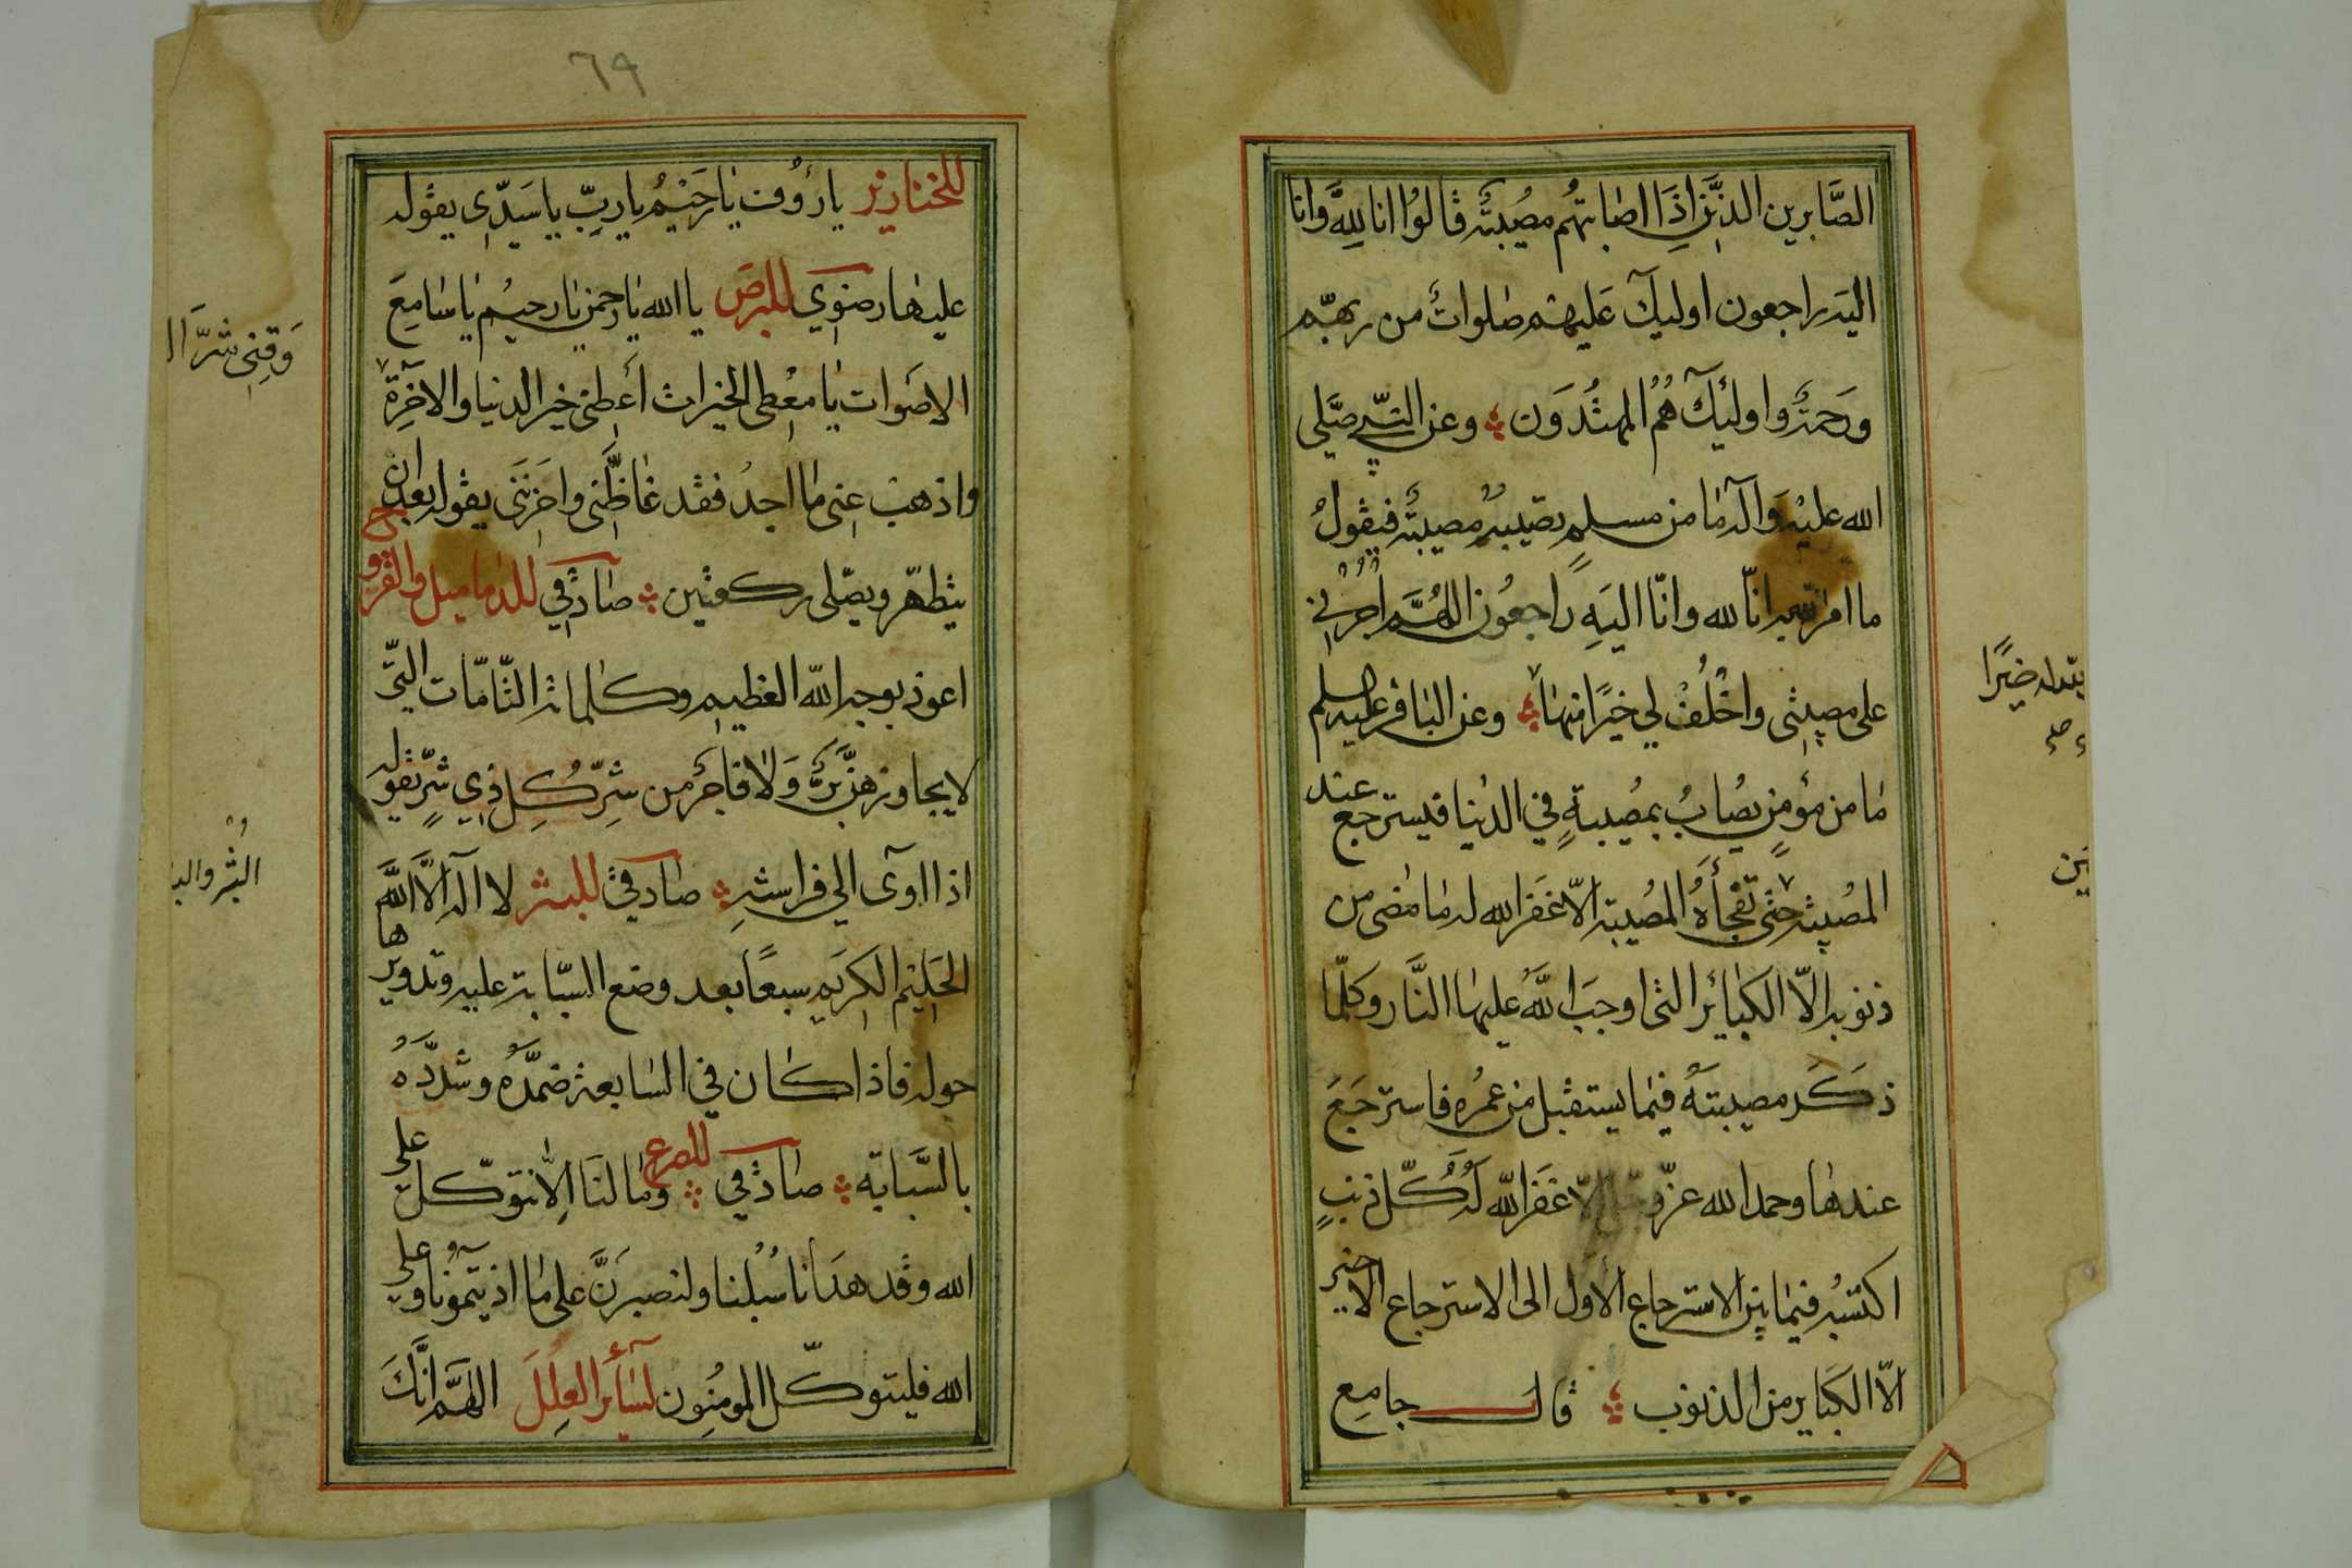 الصَّابرين الذين اذا اصابتهُم مصُيبَة قالوُا انا لِلّهِ وانا
اليه راجعون اوليكَ عَليهم صلوات من ربهّم
ورَحمَة واولئِكَ هُمُ المهتُدوَن وعن النبّي صَلّى
الله عليْهِ وَآله ما من مسلمٍ تصيبهُ مصيبَة فيقولُ
ما امره به انّا لله وانّا اليَهِ راجعوُن اللهُمَّ اجرُني
على مصيبتى واخْلُفْ لي خيرًا منها وعن الباقر عليه السلم
ما من مؤمنٍ يصُابُ بمصُيبةٍ في الدنيا فيسترجع عند
المصُيبة حتى تَفْجَأهُ المصُيبة الاّ غفَر الله له ما مضى من
ذنوبه الّا الكبائر التى اوجبَ اللهُ عليها النَّار وكلّما
ذكَر مصيبتهُ فيما يستقبل من عمُره فاسترجَعَ
عندها وحمد الله عزّ وجلّ الاّ غفَر الله لهُ كلّ ذنبٍ
اكتسَبُه فيما بين الاسترجاع الاول الى الاسترجاع الاخير
الاّ الكبَاير من الذنوب قال جامع
يبدله خيرًا
صلى
ين
٦٩
للخنازير يا رؤُف يا رَحيْمُ يا ربِّ يا سَيّدِى يقوله
عليها رضوي للبرَص يا الله يا رحمن يا رحيمُ يا سامِعَ
الاصَوات يا معُطى الخيرات اَعطِنى خير الدنيا والاخِرَة
واذهبْ عنى ما اجدُ فقد غاظَنى واحَزنَنى يقوله بعد ان
يتطهّر ويصّلى ركعتين صادقي للدماميل والقروح
اعوذ بوجه الله العظيم وكلماته التّامّات التّى
لا يجاوزهنّ بَرٌّ وَلا فاجرٌ من شرِّ كُلِ ذِي شرٍّ يقوله
اذا اوى الى فراشهِ صادقي للبثر لا اله الاَّ اللهُ
الحَليْم الكريم سبعًا بعد وضع السبّابة عليه وتدويرها
حوله فاذا كان في السابعة ضمّدهُ وشدّدَهُ
بالسَّبابة صادقي للصرع وما لنَا الِاّ نتوكّل على
الله وقد هدَانا سُبُلنا ولنصبرَنَّ على ما اذيتموُنا وعلى
الله فليتوكّل المومنُون لسَائر العلِلَ اللهمَّ انَّكَ
وَقِنِى شرَّ ا
البثر